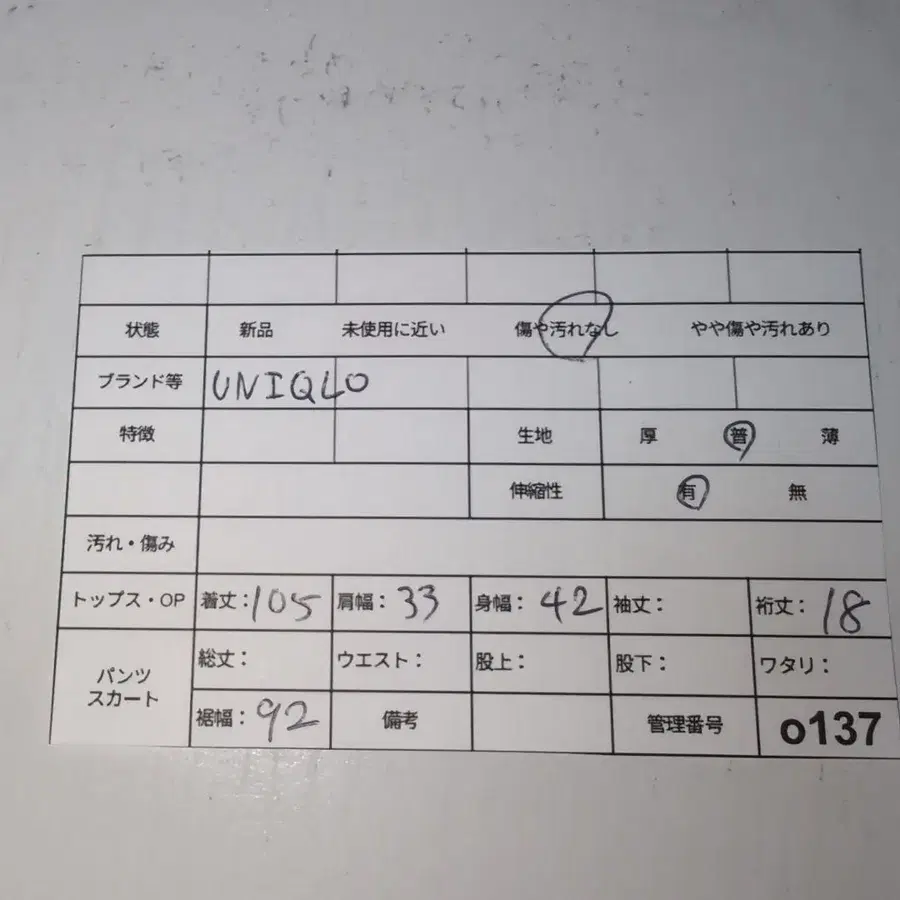 状態 新品 未使用に近い 傷や汚れなし やや傷や汚れあり
ブランド等 UNIQLO
特徴 生地 厚 普 薄
伸縮性 有 無
汚れ・傷み
トップス・OP 着丈:105 肩幅:33 身幅:42 袖丈: 裄丈:18
パンツ
スカート
総丈: ウエスト: 股上: 股下: ワタリ:
裾幅:92 備考 管理番号 o137